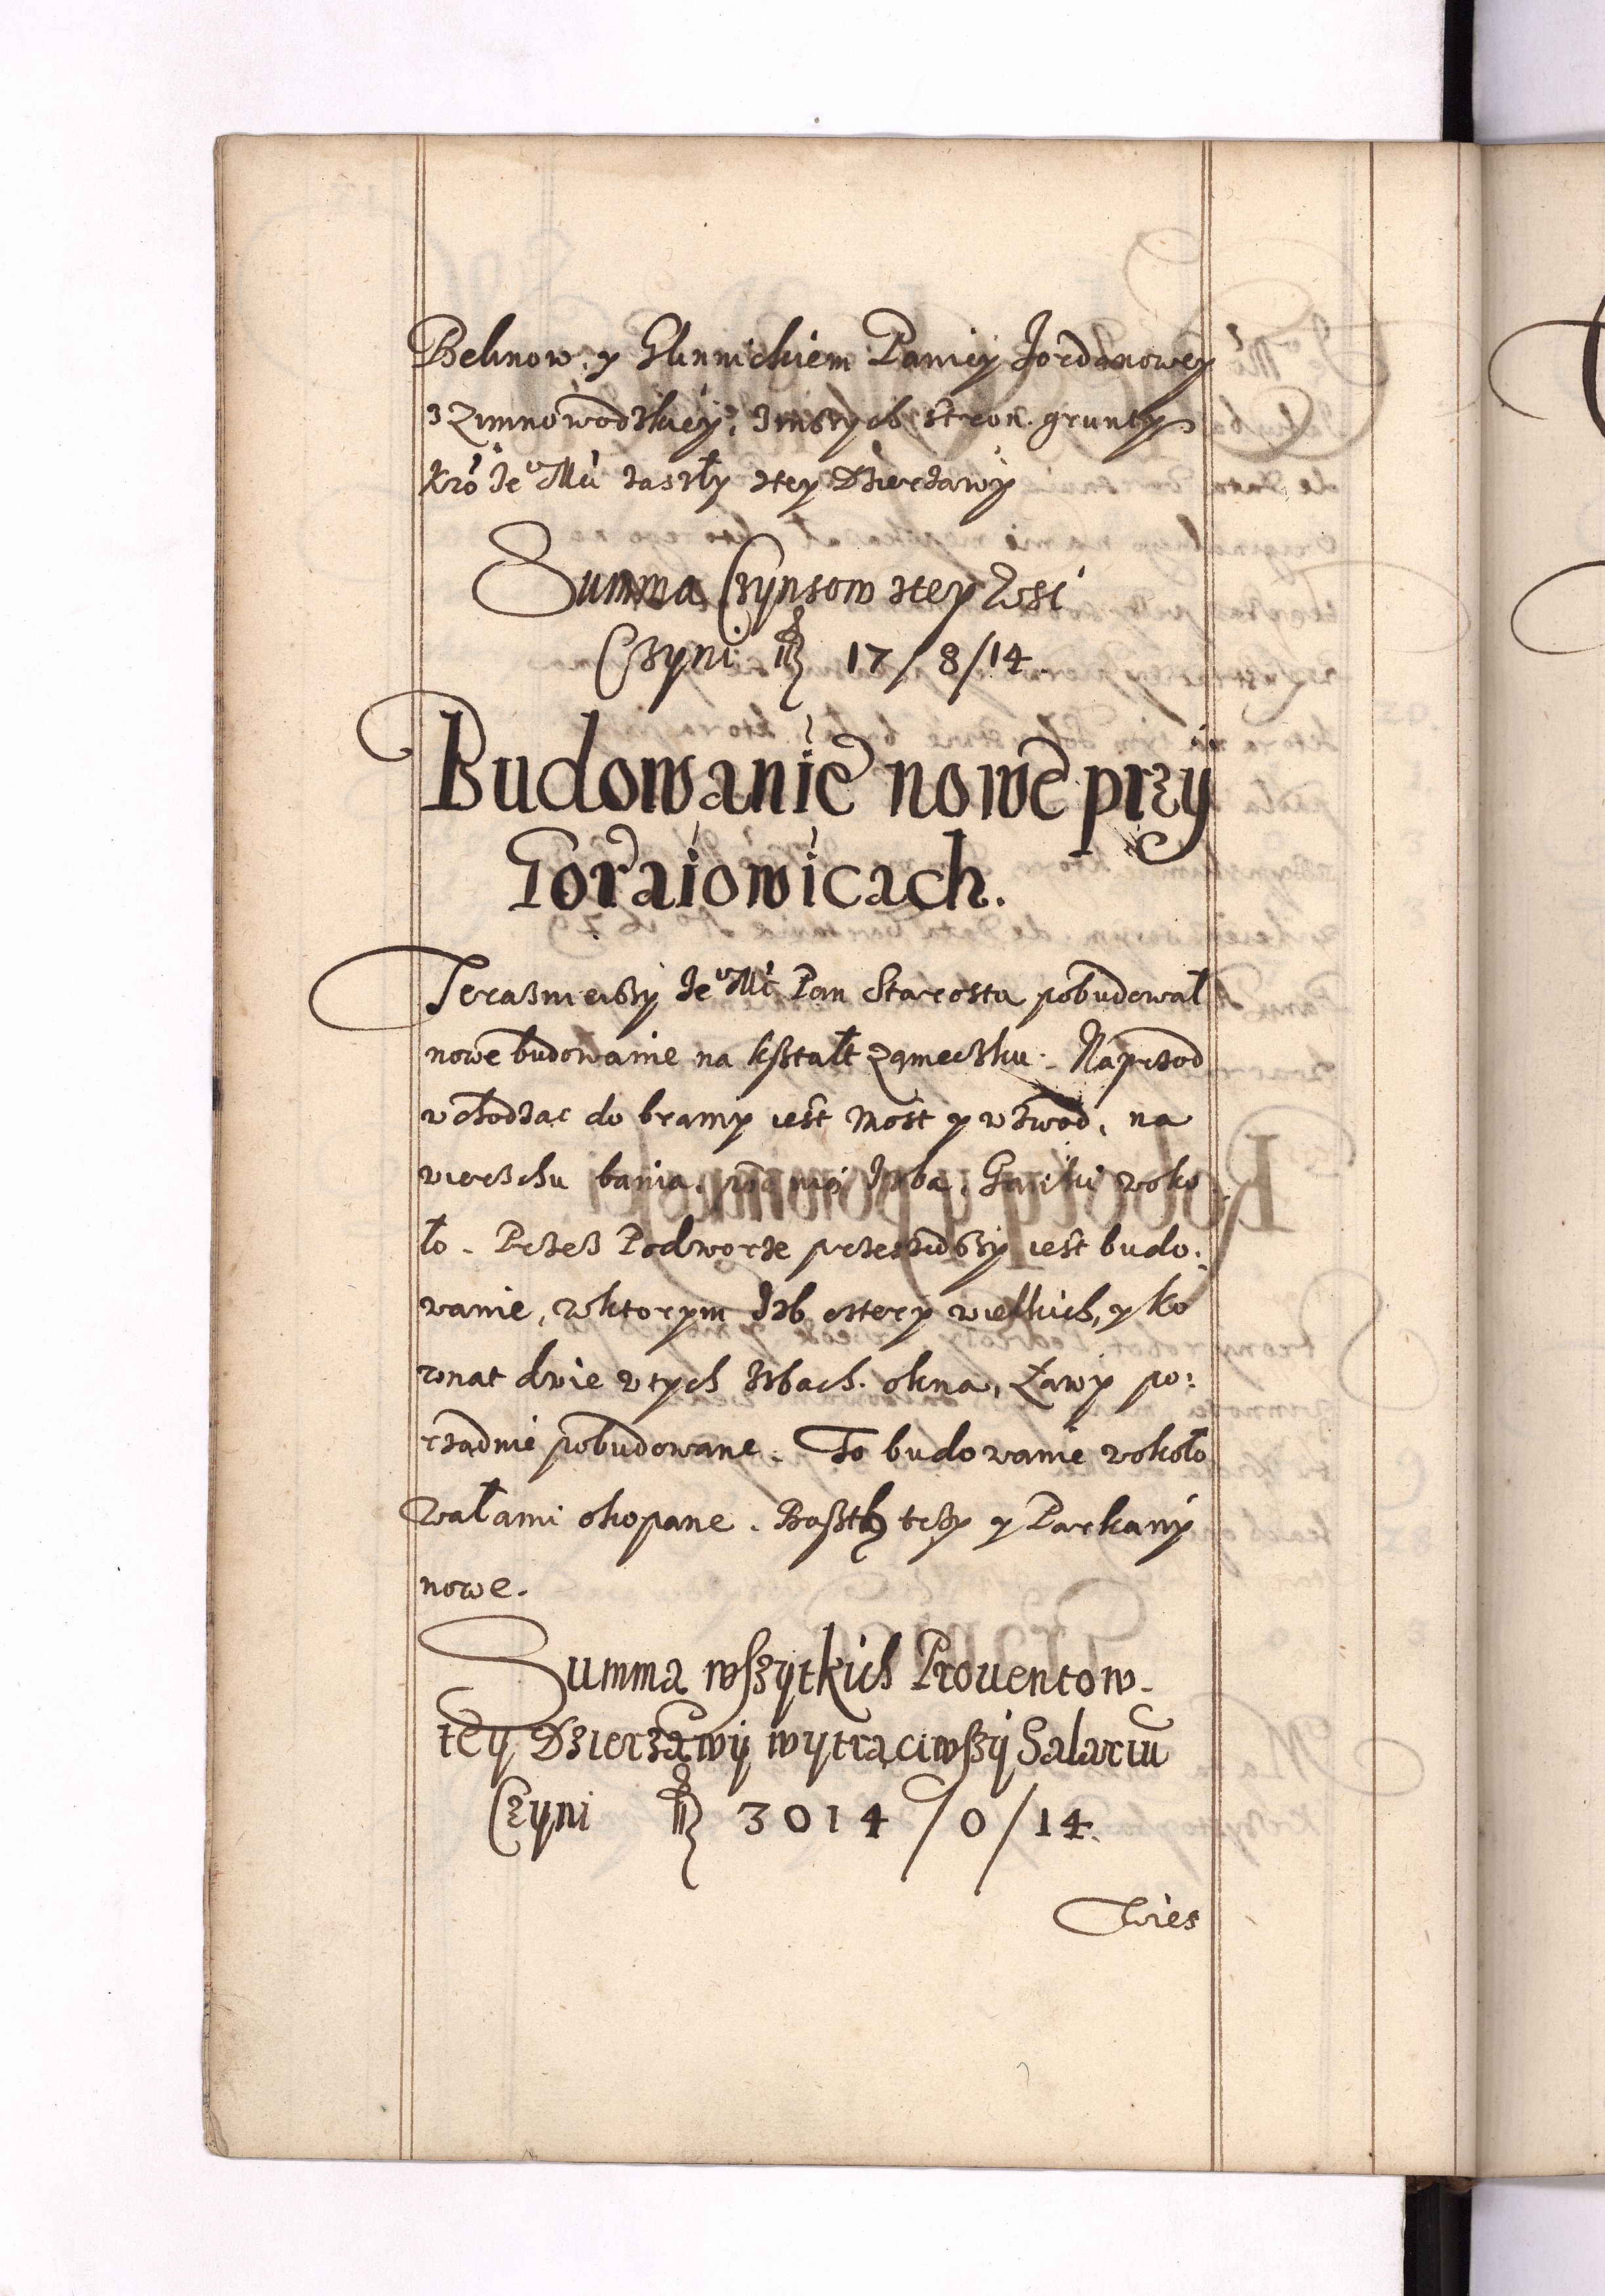 Belznow. y Glinnickiem Paniey Jordanowey
z Zimnowodzkiey, z inszych stron. grunty
Kró Je͠o Mci zaszły stey Dzierzawy
Summa Czynszow stey Wsi
Czyni fl 17/8/14.
Budowanie nowe przy
Goraiowicach.
Terasnieiszy Je͠o Mć Pan Starosta pobudował
nowe budowanie na ksztalt Zameczku. Naprzod
wchodzac do bramy iest Most y wzwod, na
wierzchu bania. pod nią Izba, Ganki woko
ło. Przesz Podworze przeszedszy iest budo:
wanie, wktorym Izb cztery wielkich, y ko
mnat dwie wtych Izbach. okna, Ławy po:
rządnie pobudowane. To budowanie wokoło
wałami okopane. Baszty tesz y Parkany
nowe.
Summa wszytkich Prouentow
tey Dzierzawy wytrąciwszy Salariu͠
Czyni fl 3014/0/14.
Wies